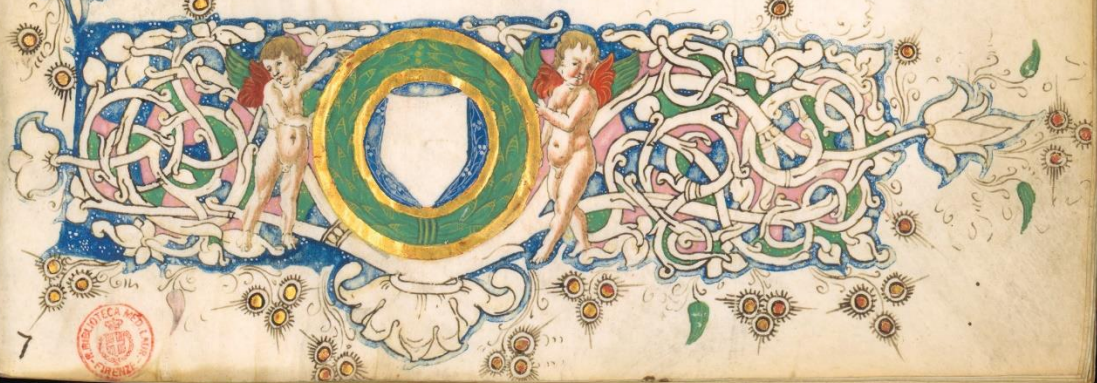 7
R. BIBLIOTECA MED. LAUR.
FIRENZE